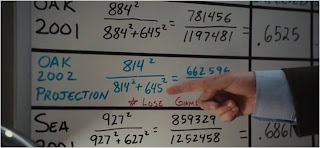 OAK 2001 884² / 884² + 645² = 781456 / 1197481 = .6525
OAK 2002 PROJECTION 814² / 814² + 645² = 662596
* LOSE
SEA 2001 927² / 927² + 627² = 859329 / 1252458 = .6861